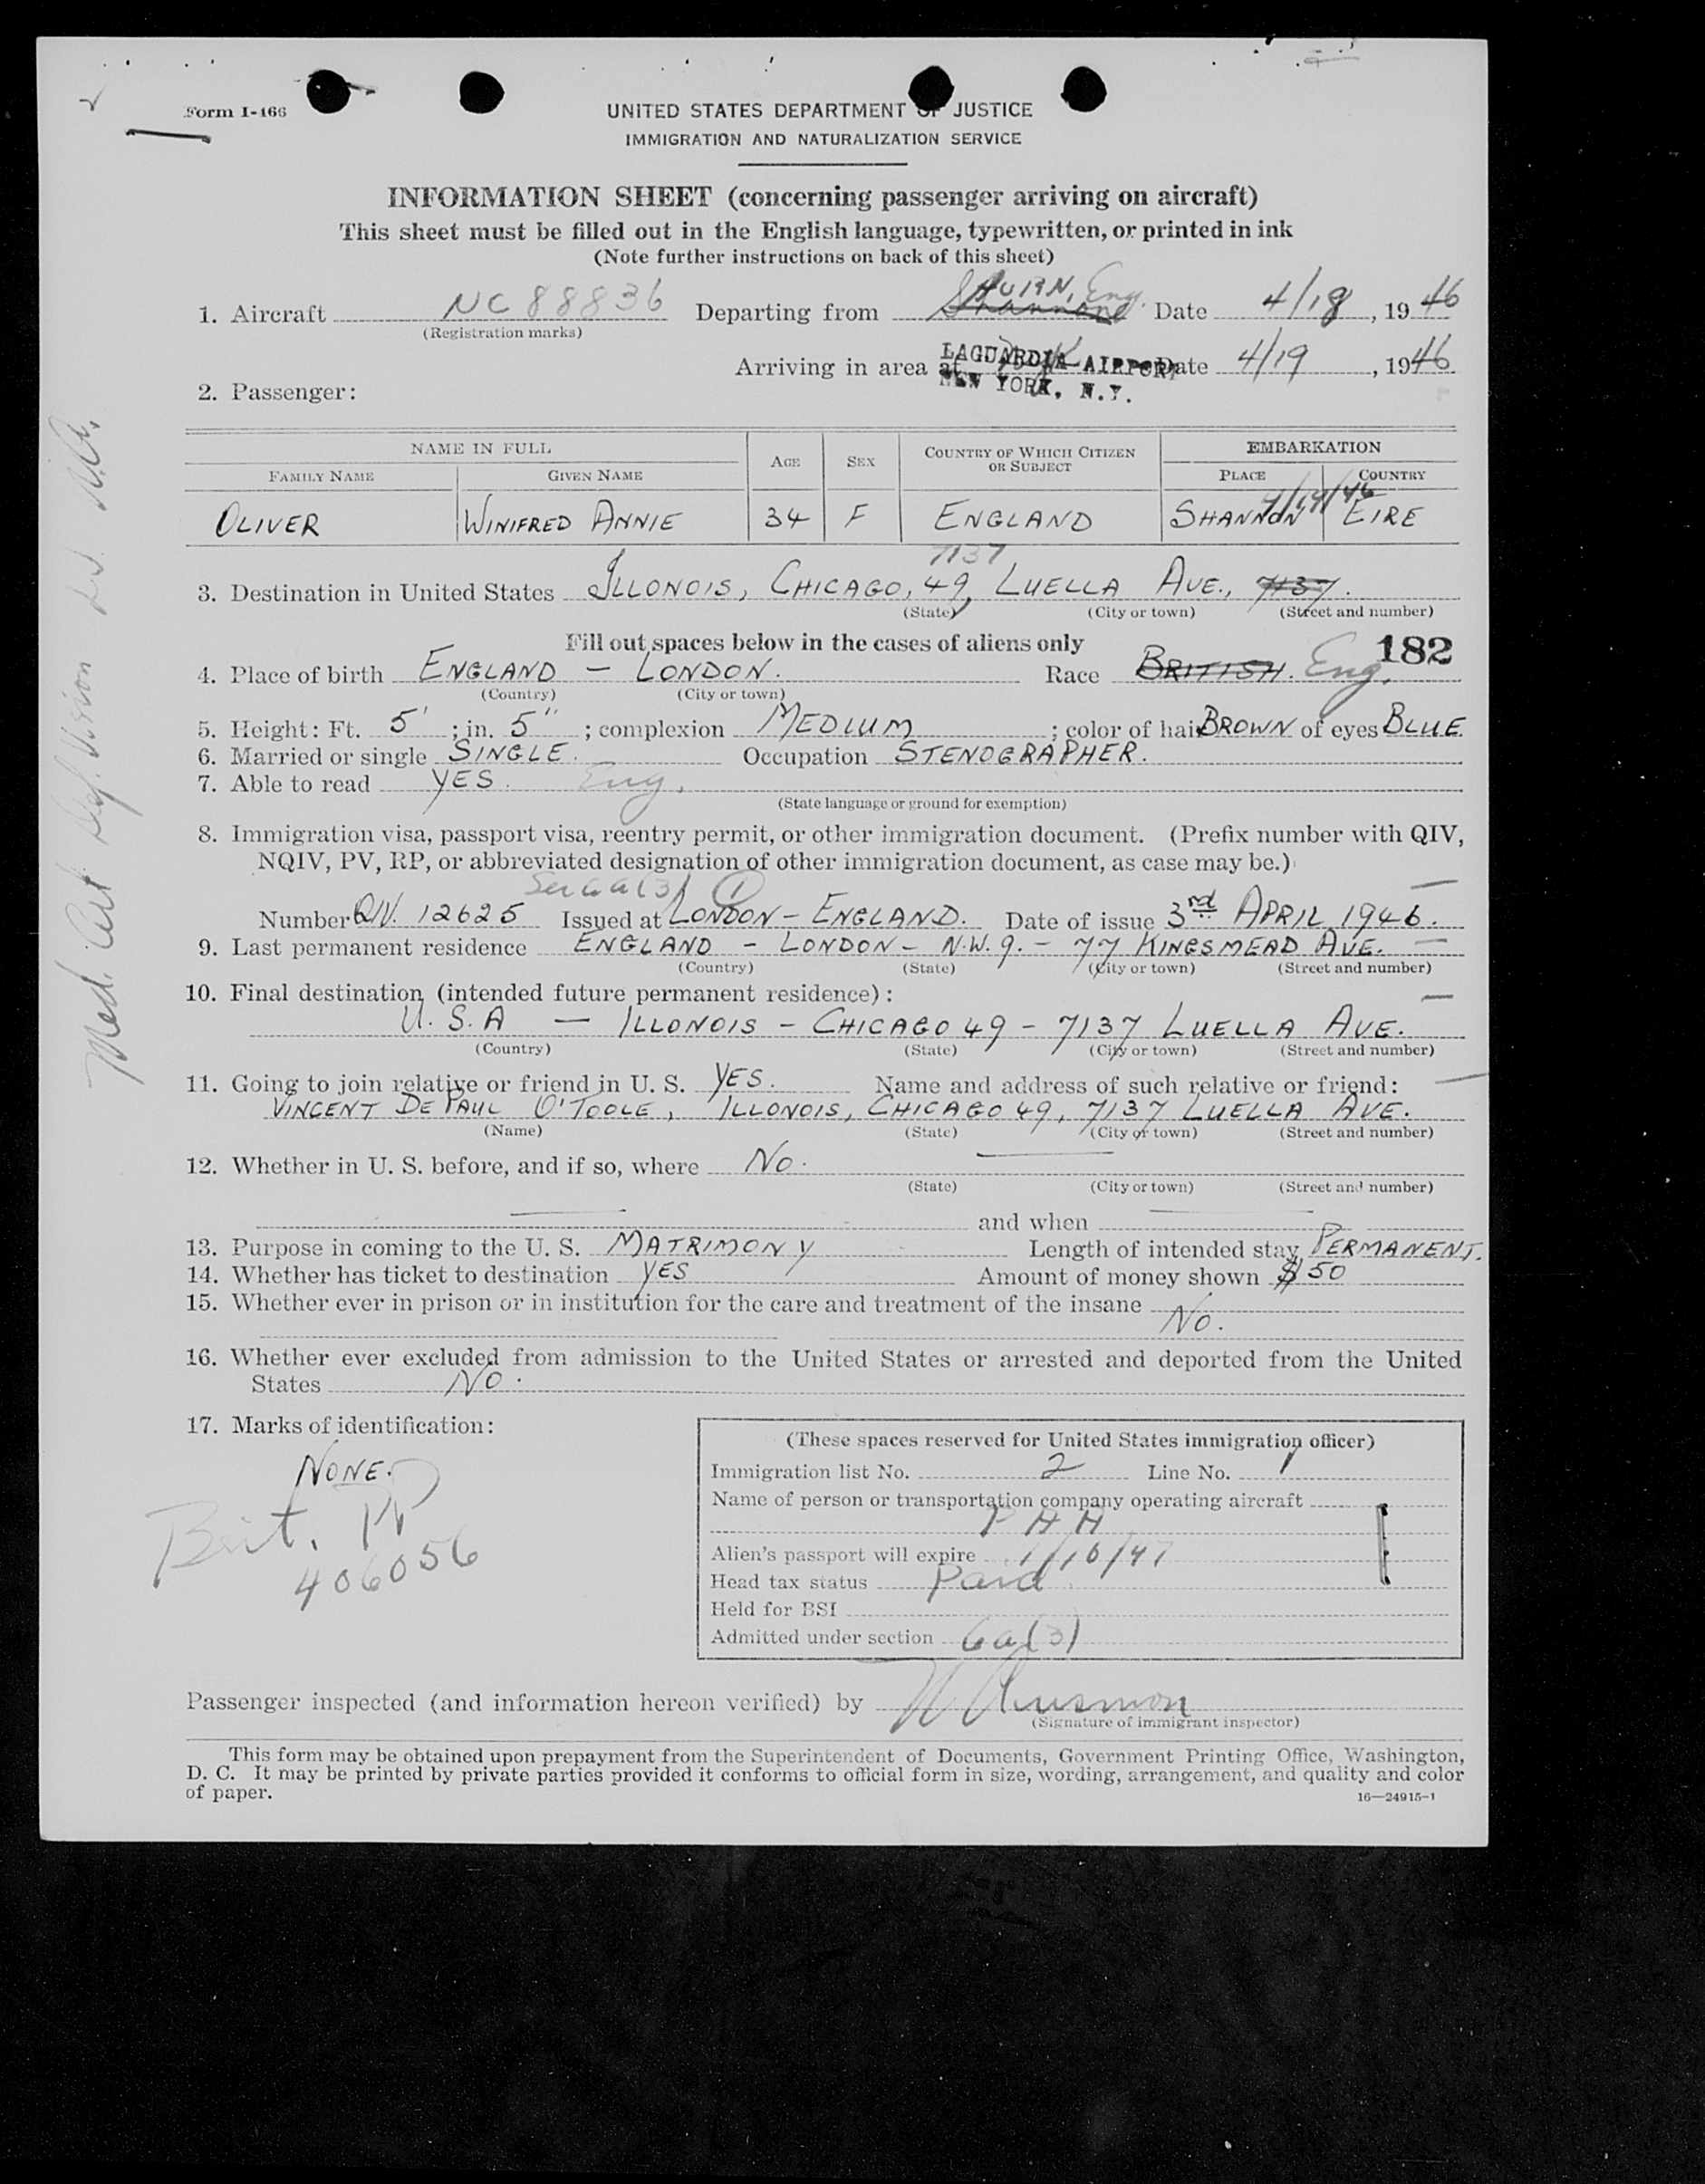 Form I-466
UNITED STATES DEPARTMENT OF JUSTICE
IMMIGRATION AND NATURALIZATION SERVICE
INFORMATION SHEET (concerning passenger arriving on aircraft)
This sheet must be filled out in the English language, typewritten, or printed in ink
(Note further instructions on back of this sheet)
1. Aircraft NC 88836 Departing from Shannon Eng. Date 4/18, 1946
(Registration marks)
Arriving in area at LAGUARDIA AIRPORT Date 4/19, 1946
NEW YORK, N.Y.
2. Passenger:
NAME IN FULL AGE SEX COUNTRY OF WHICH CITIZEN OR SUBJECT EMBARKATION
FAMILY NAME GIVEN NAME PLACE COUNTRY
4/19/46
OLIVER WINIFRED ANNIE 34 F ENGLAND SHANNON EIRE
7137
3. Destination in United States ILLONOIS, CHICAGO, 49, LUELLA AVE., 7137.
(State) (City or town) (Street and number)
Fill out spaces below in the cases of aliens only 182
4. Place of birth ENGLAND – LONDON. Race BRITISH. Eng.
(Country) (City or town)
5. Height: Ft. 5' ; in. 5" ; complexion MEDIUM ; color of hair BROWN of eyes BLUE.
6. Married or single SINGLE. Occupation STENOGRAPHER.
7. Able to read YES. Eng.
(State language or ground for exemption)
8. Immigration visa, passport visa, reentry permit, or other immigration document. (Prefix number with QIV,
NQIV, PV, RP, or abbreviated designation of other immigration document, as case may be.)
Sec 6a(3) 1
Number QIV. 12625 Issued at LONDON – ENGLAND. Date of issue 3rd APRIL 1946.
9. Last permanent residence ENGLAND – LONDON – N.W.9. – 77 KINGSMEAD AVE. –
(Country) (State) (City or town) (Street and number)
10. Final destination (intended future permanent residence):
U.S.A – ILLONOIS – CHICAGO 49 – 7137 LUELLA AVE.
(Country) (State) (City or town) (Street and number)
11. Going to join relative or friend in U. S. YES. Name and address of such relative or friend:
VINCENT DE PAUL O'TOOLE, ILLONOIS, CHICAGO 49, 7137 LUELLA AVE.
(Name) (State) (City or town) (Street and number)
12. Whether in U. S. before, and if so, where No.
(State) (City or town) (Street and number)
and when
13. Purpose in coming to the U. S. MATRIMONY Length of intended stay PERMANENT.
14. Whether has ticket to destination YES Amount of money shown $150
15. Whether ever in prison or in institution for the care and treatment of the insane
No.
16. Whether ever excluded from admission to the United States or arrested and deported from the United
States No.
17. Marks of identification:
NONE.
Brit. PP
406056
(These spaces reserved for United States immigration officer)
Immigration list No. 2 Line No. 1
Name of person or transportation company operating aircraft
PAA
Alien's passport will expire 1/16/47
Head tax status Paid
Held for BSI
Admitted under section 6a(3)
Passenger inspected (and information hereon verified) by
(Signature of immigrant inspector)
This form may be obtained upon prepayment from the Superintendent of Documents, Government Printing Office, Washington,
D. C. It may be printed by private parties provided it conforms to official form in size, wording, arrangement, and quality and color
of paper.
16—24915-1
Med. Cert